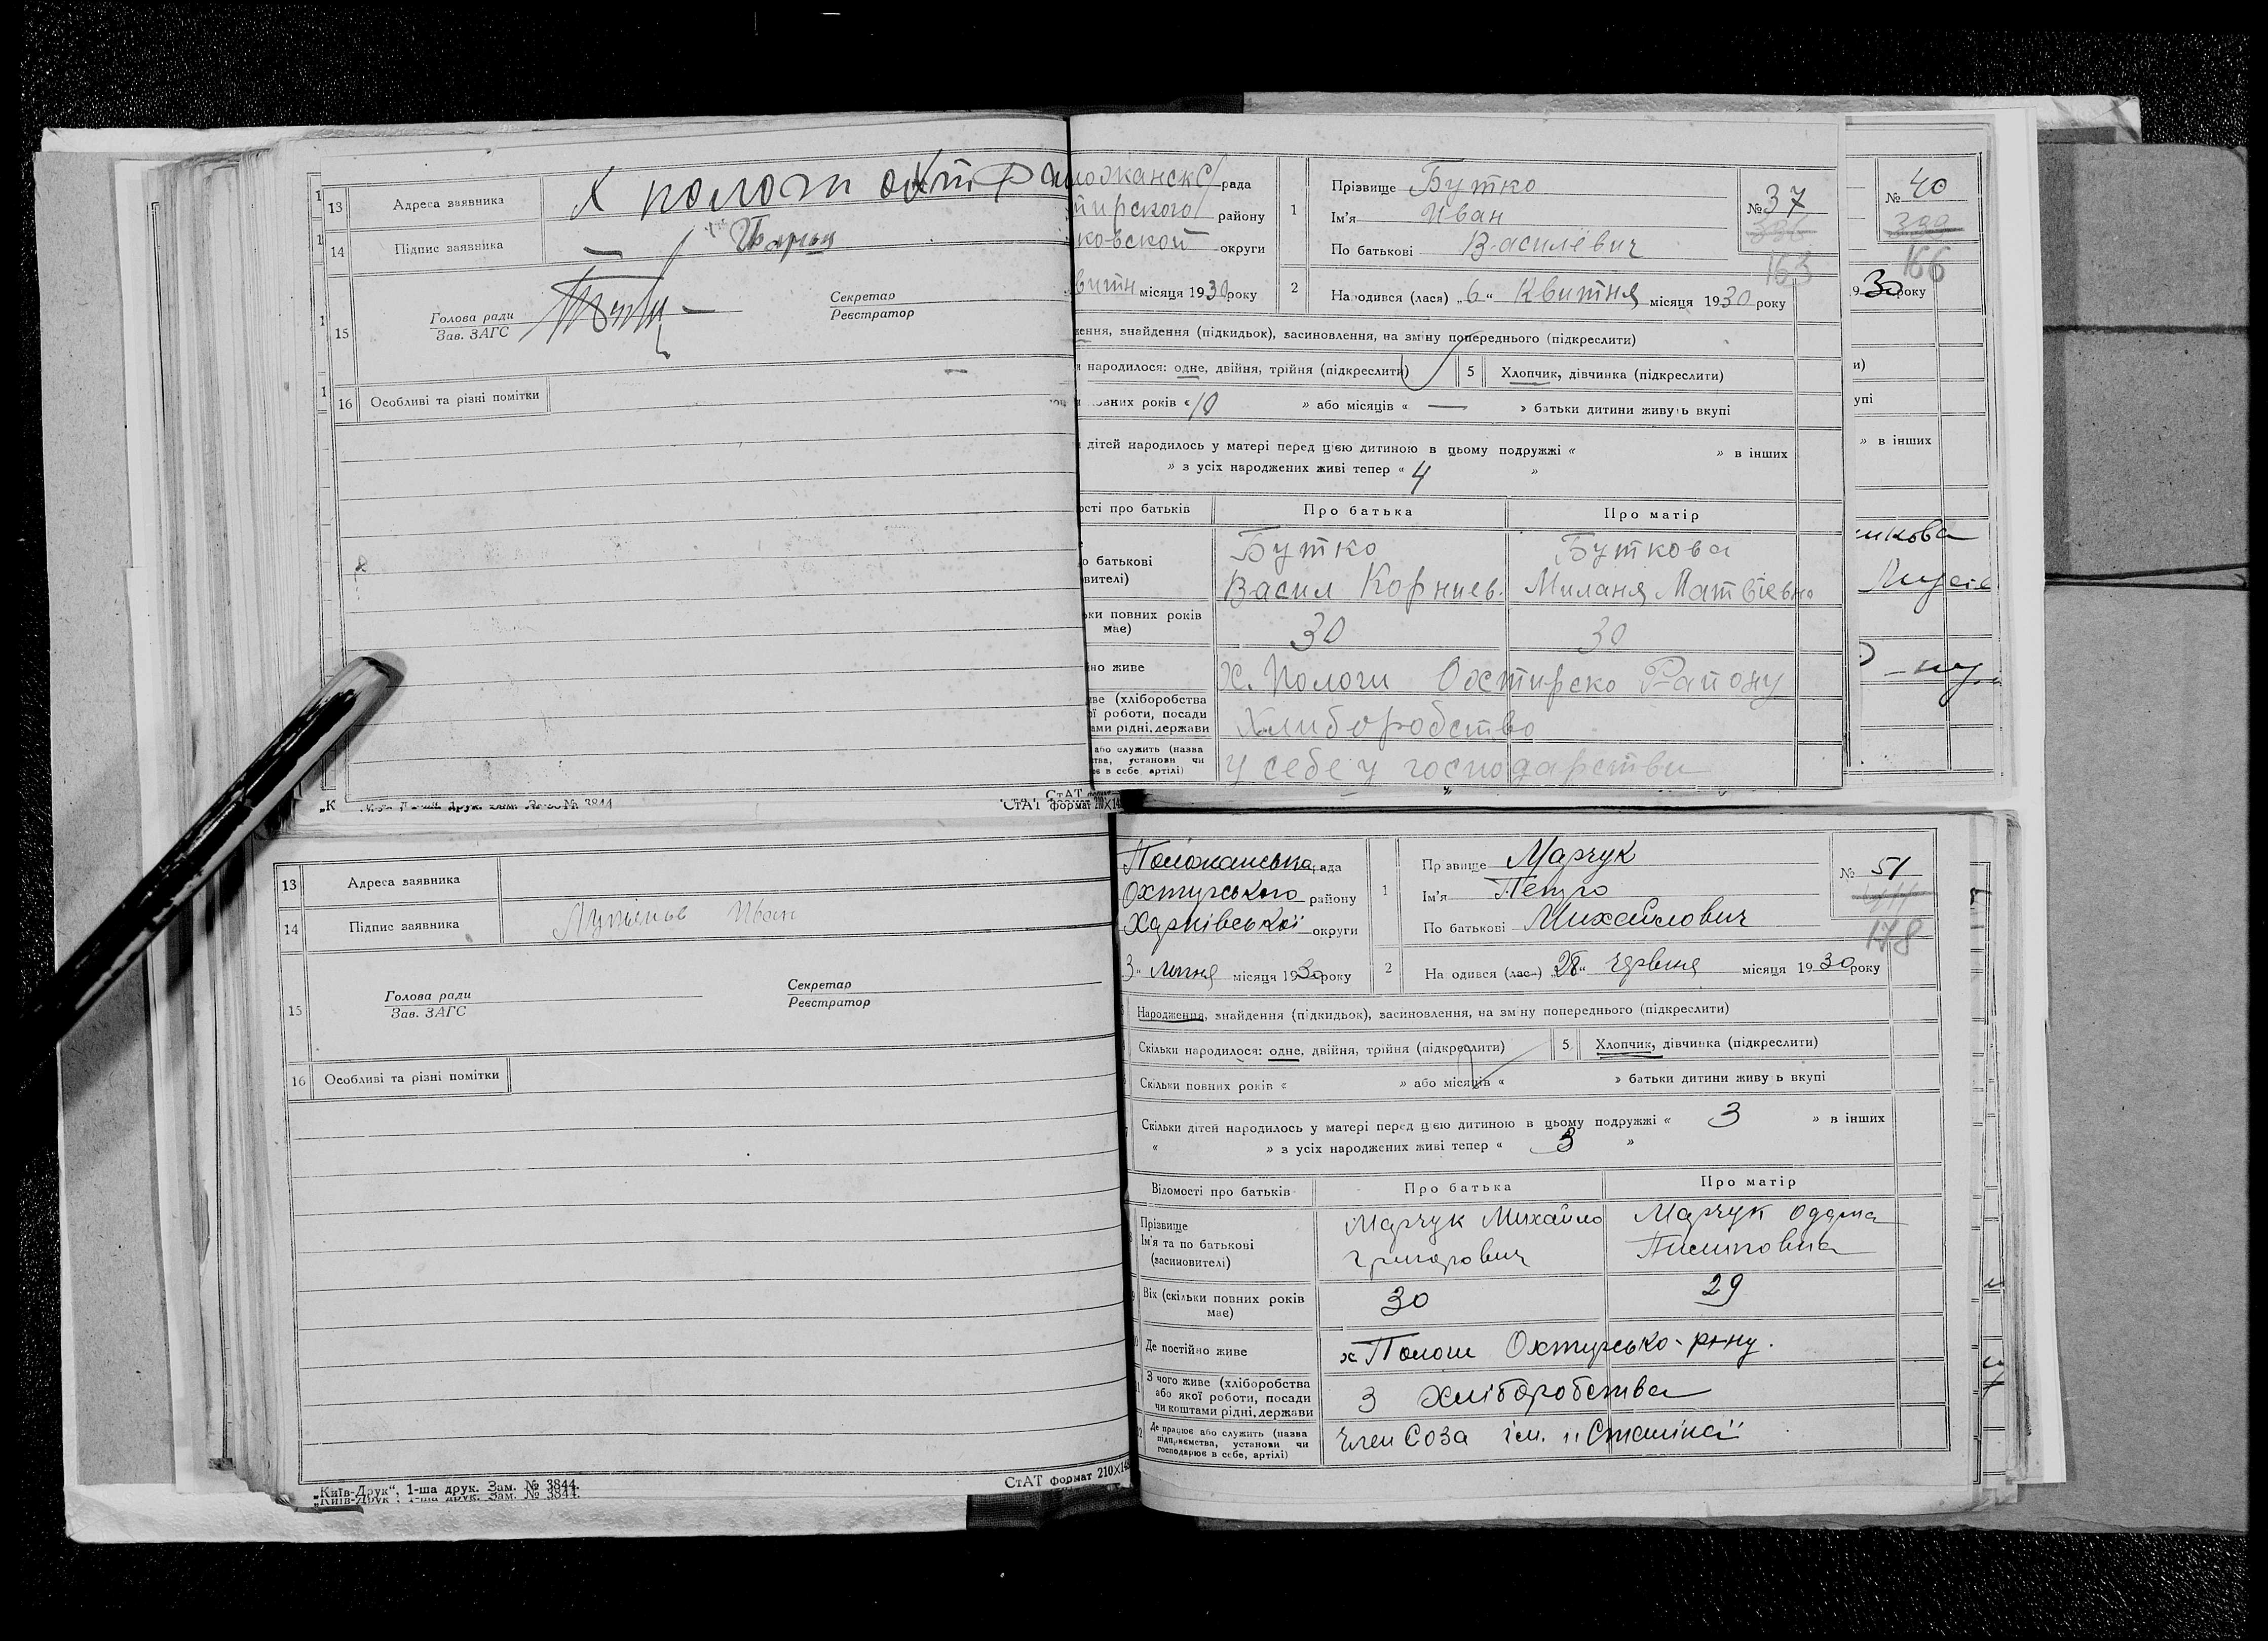 13 Адреса заявника Х пологи охт
14 Підпис заявника
15 Голова ради
Зав. ЗАГС
Секретар
Реєстратор
16 Особливі та різні помітки
СтАТ формат 210Х14
рада
району
ковской округи
місяця 1930 року
1 Прізвище Бутко
Ім'я Иван
По батькові Василевич
№ 37
163
2 Народився (лася) „6“ Квитня місяця 1930 року
ення, знайдення (підкидьок), засиновлення, на зміну попереднього (підкреслити)
народилося: одне, двійня, трійня (підкреслити) 5 Хлопчик, дівчинка (підкреслити)
повних років « 10 » або місяців « — » батьки дитини живуть вкупі
дітей народилось у матері перед цією дитиною в цьому подружжі « » в інших
» з усіх народжених живі тепер « 4 »
ості про батьків Про батька Про матір
о батькові
вителі)
Бутко
Васил Корниев.
Буткова
Миланя Матвіевна
ки повних років
має)
30 30
но живе Х. Пологи Охтирско Району
ве (хліборобства
ої роботи, посади
ами рідні, держави
Хлиборобство
або служить (назва
ства, установи чи
є в себе, артілі)
у себе у господарстви
№ 40
166
930 року
и)
упі
» в інших
икова
13 Адреса заявника
14 Підпис заявника Иван
15 Голова ради
Зав. ЗАГС
Секретар
Реєстратор
16 Особливі та різні помітки
„Київ-Друк“, 1-ша друк. Зам. № 3844.
СтАТ формат 210Х14
Положанська рада
Охтирського району
Харківської округи
3“ липня місяця 1930 року
1 Прізвище Марчук
Ім'я Петро
По батькові Михайлович
№ 51
178
2 На одився (лася) „28“ червня місяця 1930 року
Народження, знайдення (підкидьок), засиновлення, на зміну попереднього (підкреслити)
Скільки народилося: одне, двійня, трійня (підкреслити) 5 Хлопчик, дівчинка (підкреслити)
Скільки повних років « » або місяців « » батьки дитини живуть вкупі
Скільки дітей народилось у матері перед цією дитиною в цьому подружжі « 3 » в інших
« » з усіх народжених живі тепер « 3 »
Відомості про батьків Про батька Про матір
Прізвище
Ім'я та по батькові
(засиновителі)
Марчук Михайло
Григорович
Марчук Одарка
Вік (скільки повних років
має)
30 29
Де постійно живе х Пологи Охтирсько-р-ну.
З чого живе (хліборобства
або якої роботи, посади
чи коштами рідні, держави
З хліборобства
Де працює або служить (назва
підприємства, установи чи
господарює в себе, артілі)
Член Соза ім. „Сталіна“